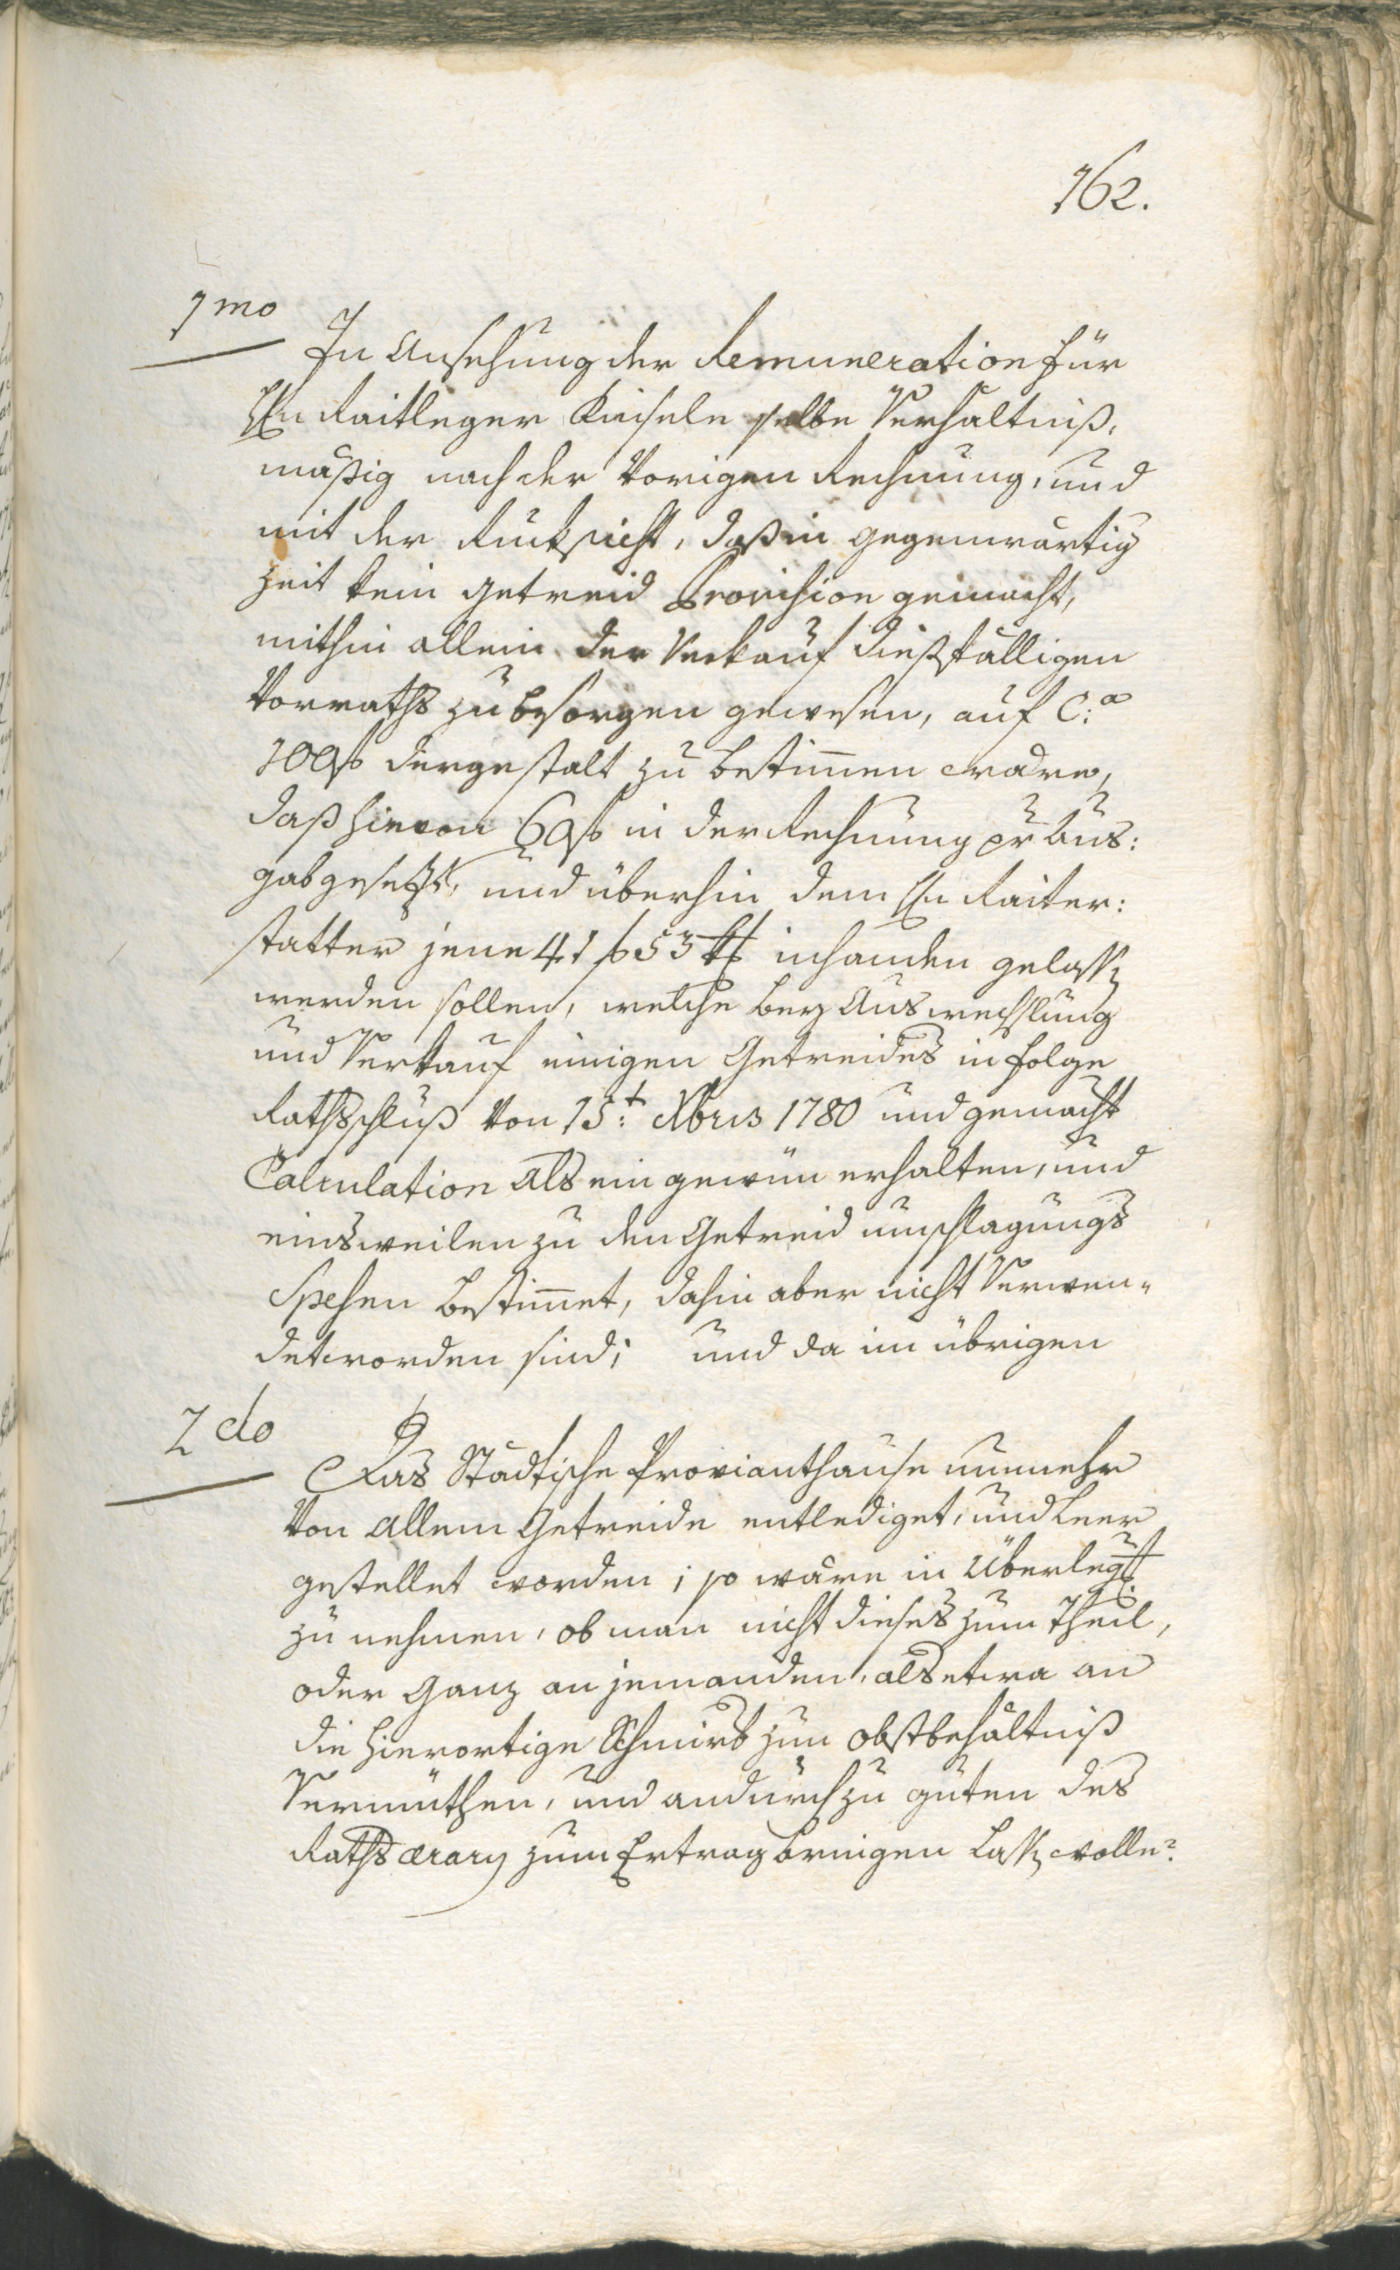 162.
1mo
In Ansehung der Remuneration für
Hn Raitleger Kiesele selbe Verhältniß¬
mäßig nach der vorigen Rechnung, und
mit der Rucksicht, daß in gegenwärtig
Zeit kein Getreid Provision gemacht,
mithin allein der Verkauf dießfälligen
Vorraths zu besorgen gewesen, auf C:a
100 f dergestalt zu bestimmen wäre,
daß hievon 60 f in der Rechnung pr Aus:
gab gesetzt, und überhin dem Hn Raiter:
statter jene 41 f 53 xr inhanden gelassen
werden sollen, welche bey Auswechslung
und Verkauf einigen Getreides in folge
Rathsschluß von 15:t Xbris 1780 und gemacht
Calculation als ein gewinn erhalten, und
einsweilen zu den Getreid umschlagungs
Spesen bestimmet, dahin aber nicht Verwen¬
det worden sind; und da im übrigen
2do
Das Städtische Provianthause nunmehr
von allem Getreide entlediget, und leer
gestellet worden; so wäre in Überlegung
zu nehmen, ob man nicht dieses zum Theil,
oder Ganz an jemanden, als etwa an
die hierortige Schmirb zum Obstbehältniß
Vermüthen, und andurch zu guten des
Raths ærary zum Ertrag bringen lassen wolle?